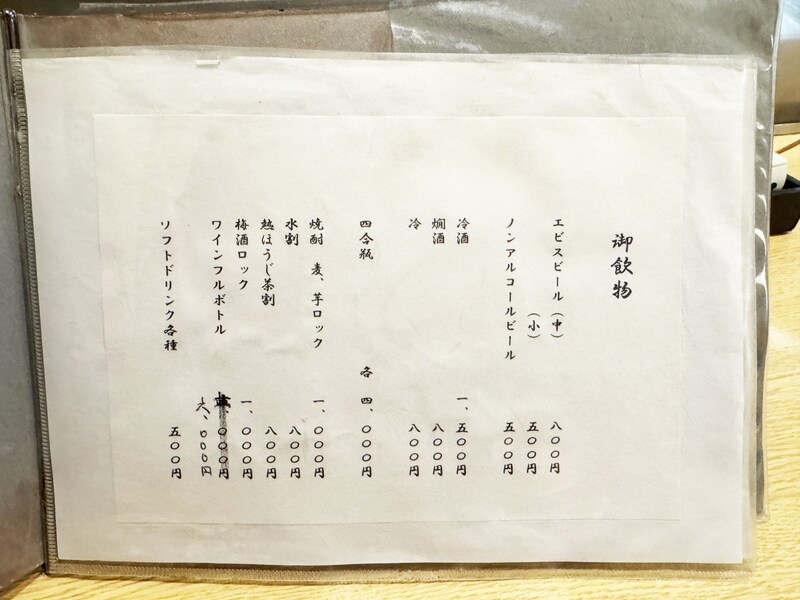 御飲物
エビスビール（中） 八〇〇円
（小） 五〇〇円
ノンアルコールビール 五〇〇円
冷酒 一、五〇〇円
燗酒 八〇〇円
冷 八〇〇円
四合瓶 各 四、〇〇〇円
焼酎 麦、芋ロック 一、〇〇〇円
水割 八〇〇円
熱ほうじ茶割 八〇〇円
梅酒ロック 一、〇〇〇円
ワインフルボトル 〇〇〇円
六、〇〇〇円
ソフトドリンク各種 五〇〇円